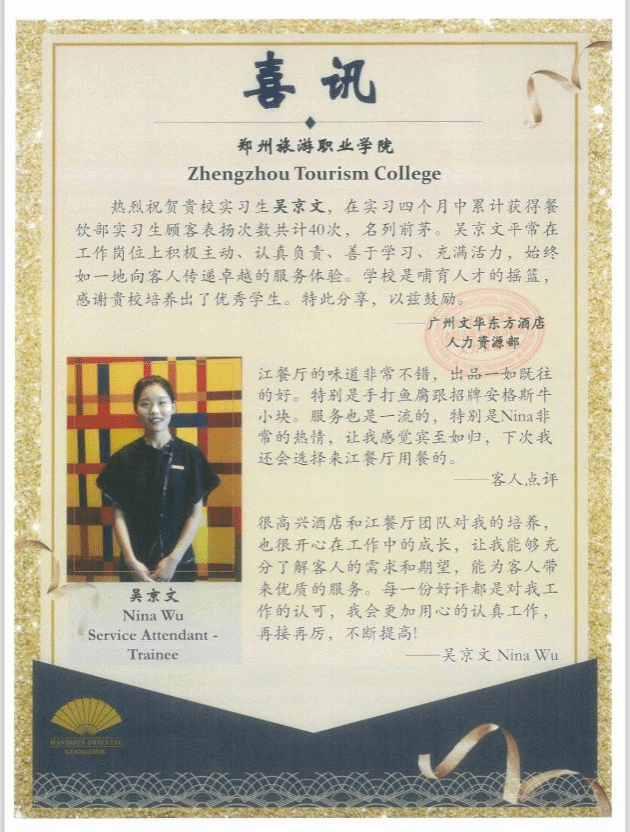 喜讯
郑州旅游职业学院
Zhengzhou Tourism College
热烈祝贺贵校实习生吴京文，在实习四个月中累计获得餐
饮部实习生顾客表扬次数共计40次，名列前茅。吴京文平常在
工作岗位上积极主动、认真负责、善于学习、充满活力，始终
如一地向客人传递卓越的服务体验。学校是哺育人才的摇篮，
感谢贵校培养出了优秀学生。特此分享，以兹鼓励。
——广州文华东方酒店
人力资源部
江餐厅的味道非常不错，出品一如既往
的好。特别是手打鱼腐跟招牌安格斯牛
小块。服务也是一流的，特别是Nina非
常的热情，让我感觉宾至如归，下次我
还会选择来江餐厅用餐的。
——客人点评
很高兴酒店和江餐厅团队对我的培养，
也很开心在工作中的成长，让我能够充
分了解客人的需求和期望，能为客人带
来优质的服务。每一份好评都是对我工
作的认可，我会更加用心的认真工作，
再接再厉，不断提高!
——吴京文 Nina Wu
吴京文
Nina Wu
Service Attendant -
Trainee
MANDARIN ORIENTAL
GUANGZHOU